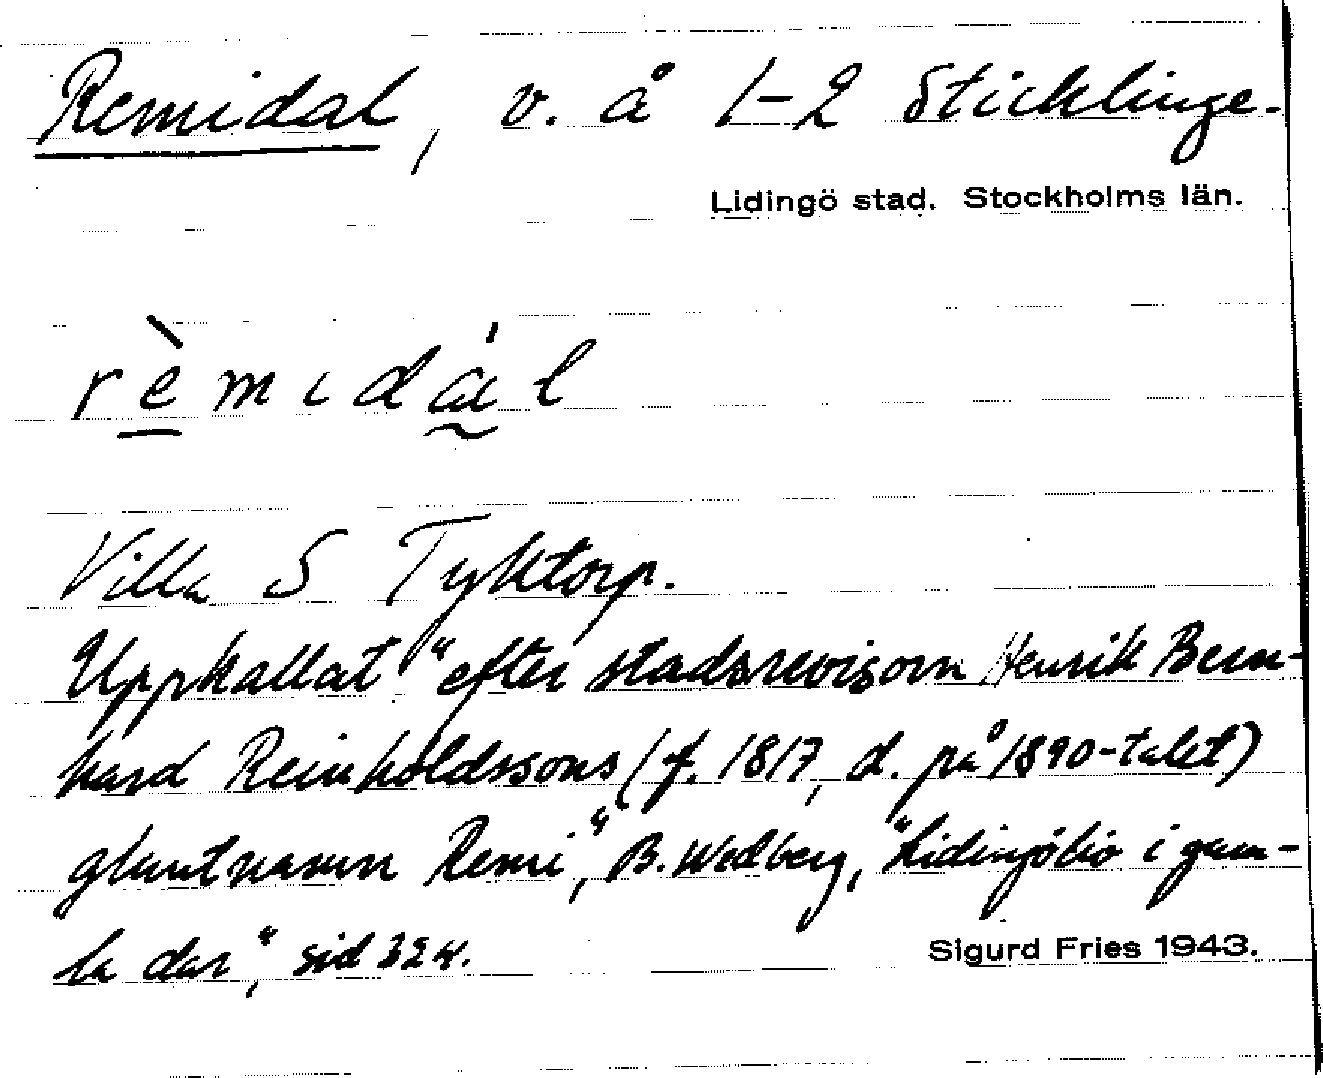 Remidal, v. å 1-2 Sticklinge.
Lidingö stad. Stockholms län.
rèmɩdál
Villa S Tyktorp.
Uppkallat "efter stadsrevisorn Henrik Bern-
hard Reinholdssons (f. 1817, d. på 1890-talet)
gluntnamn Remi", B. Wedberg, "Lidingöliv i gam-
la dar", sid 324.
Sigurd Fries 1943.